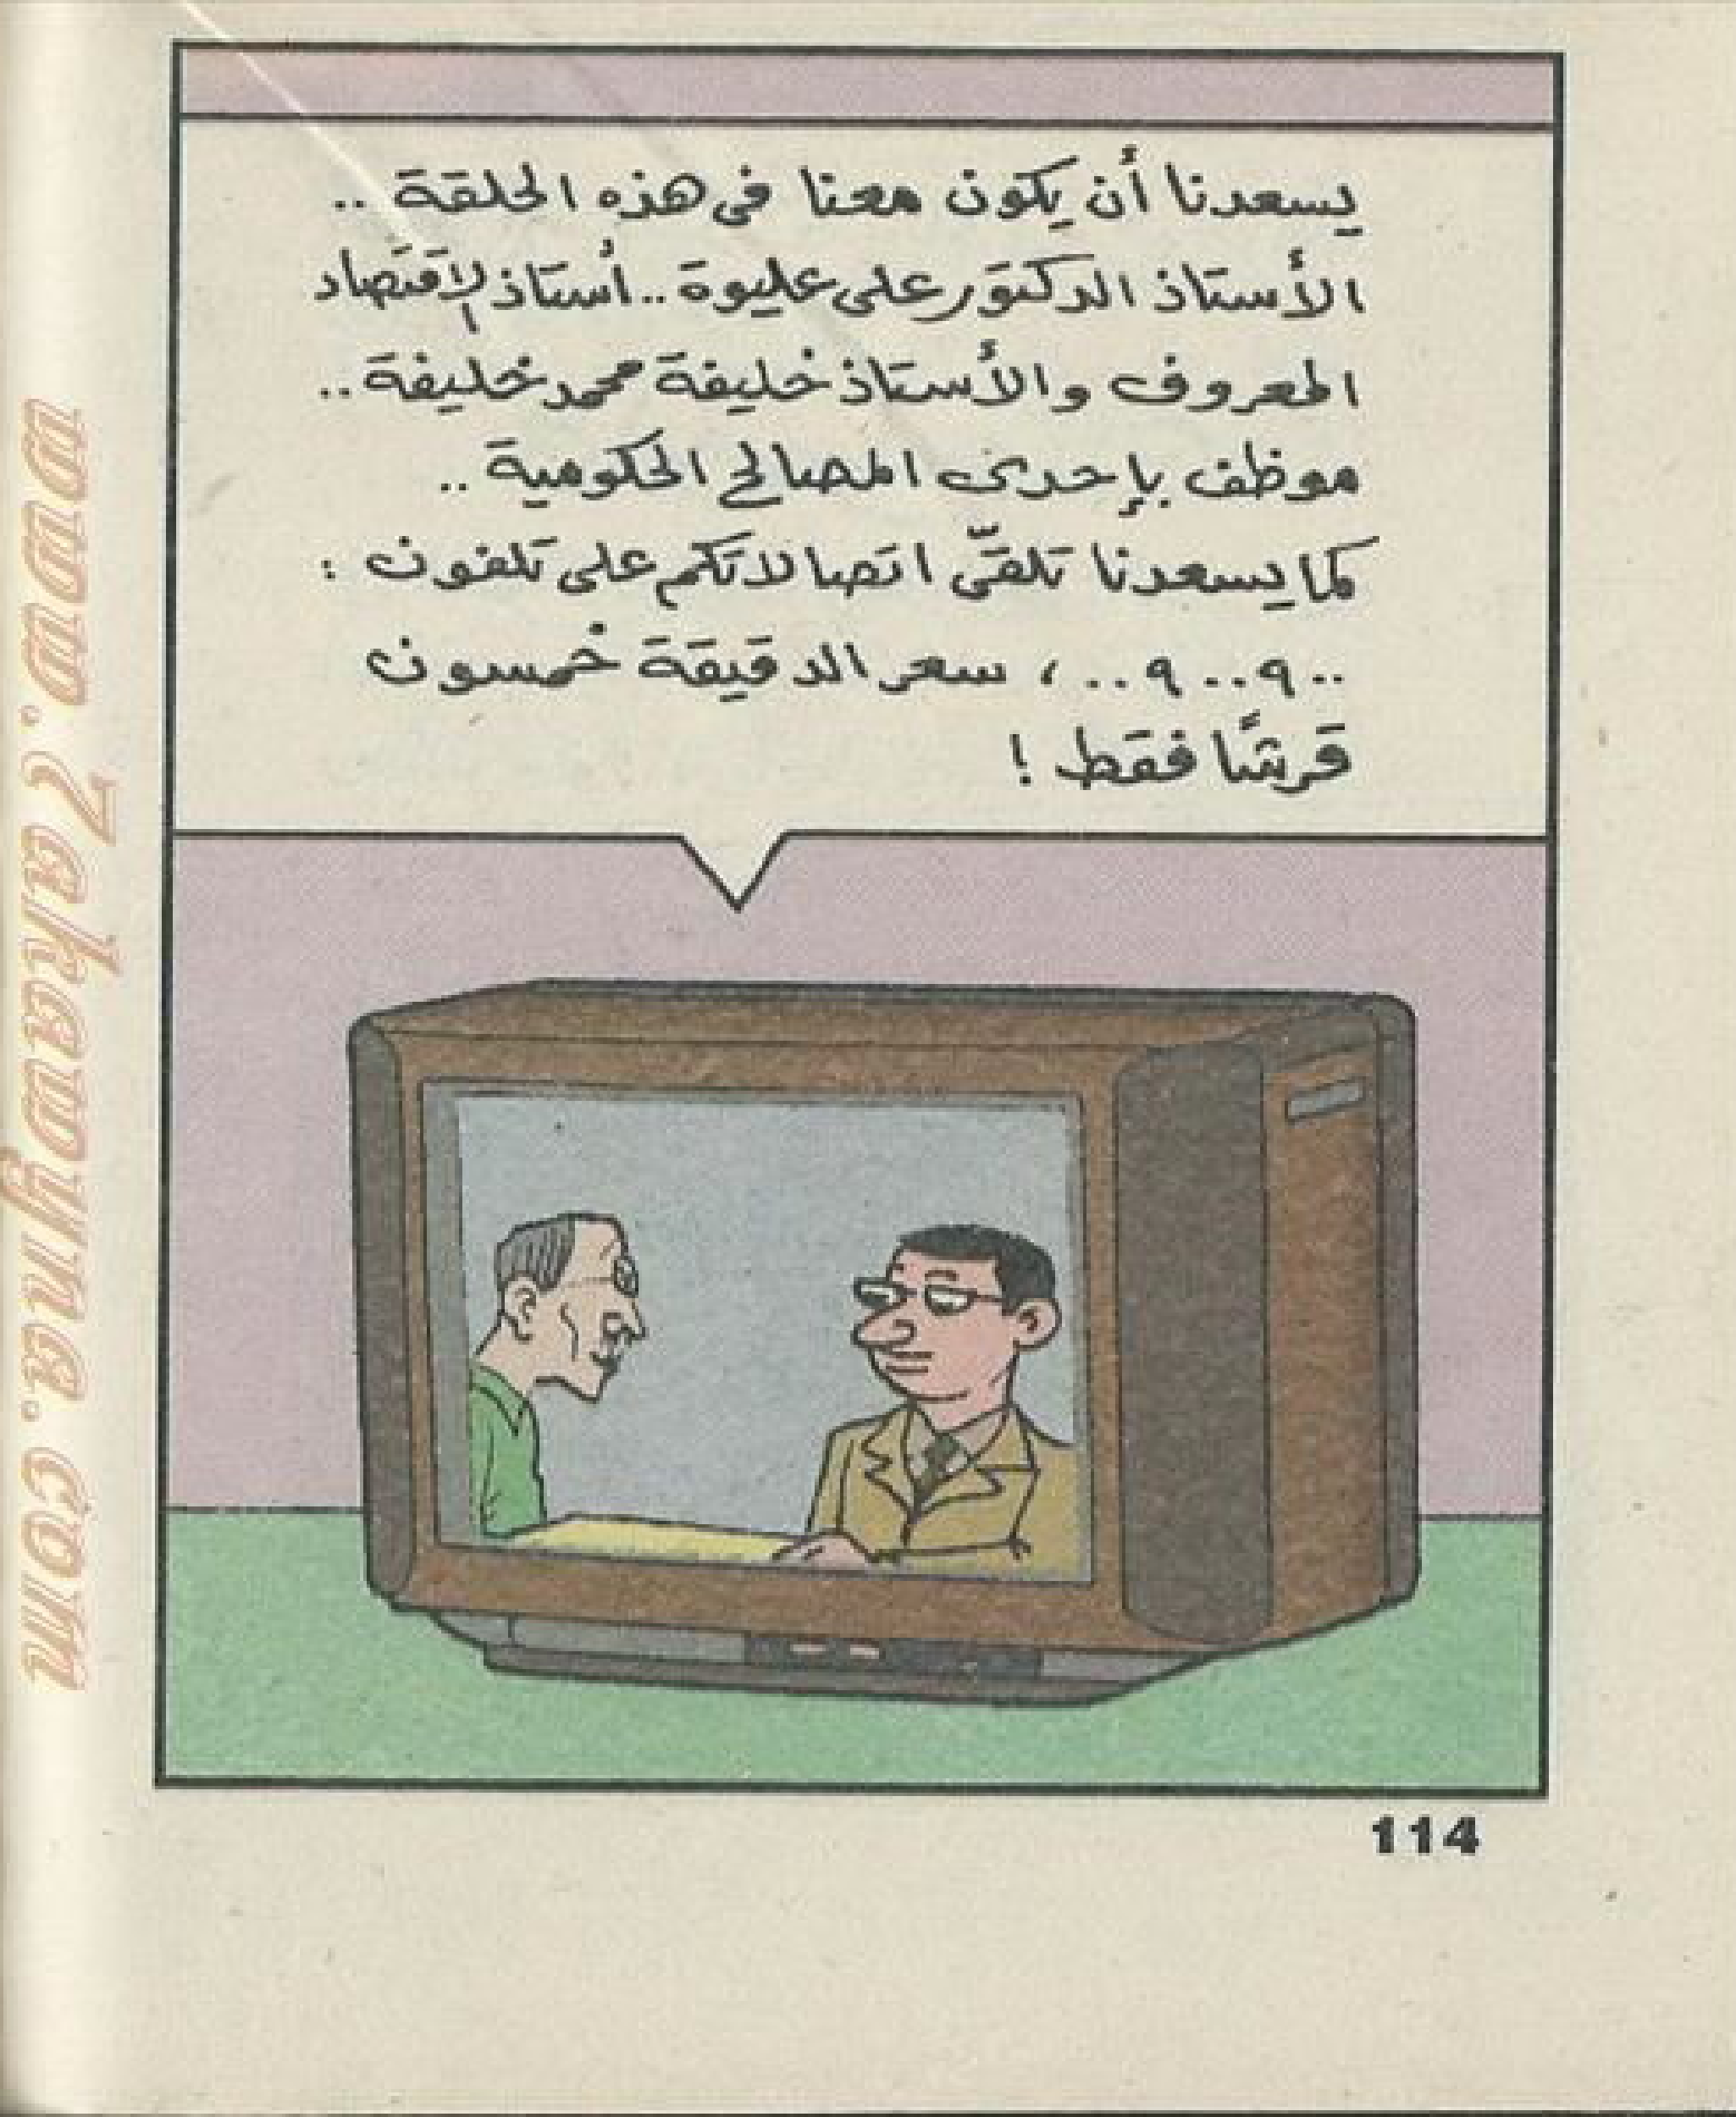 يسعدنا أن يكون معنا فى هذه الحلقة ..
الأستاذ الدكتور على عليوة .. أستاذ الاقتصاد
المعروف والأستاذ خليفة محمد خليفة ..
موظف بإحدى المصالح الحكومية ..
كما يسعدنا تلقّى اتصالاتكم على تلفون :
٠٠٩٠٠٩٠٠ ، سعر الدقيقة خمسون
قرشًا فقط !
114
www.7akawyna.com